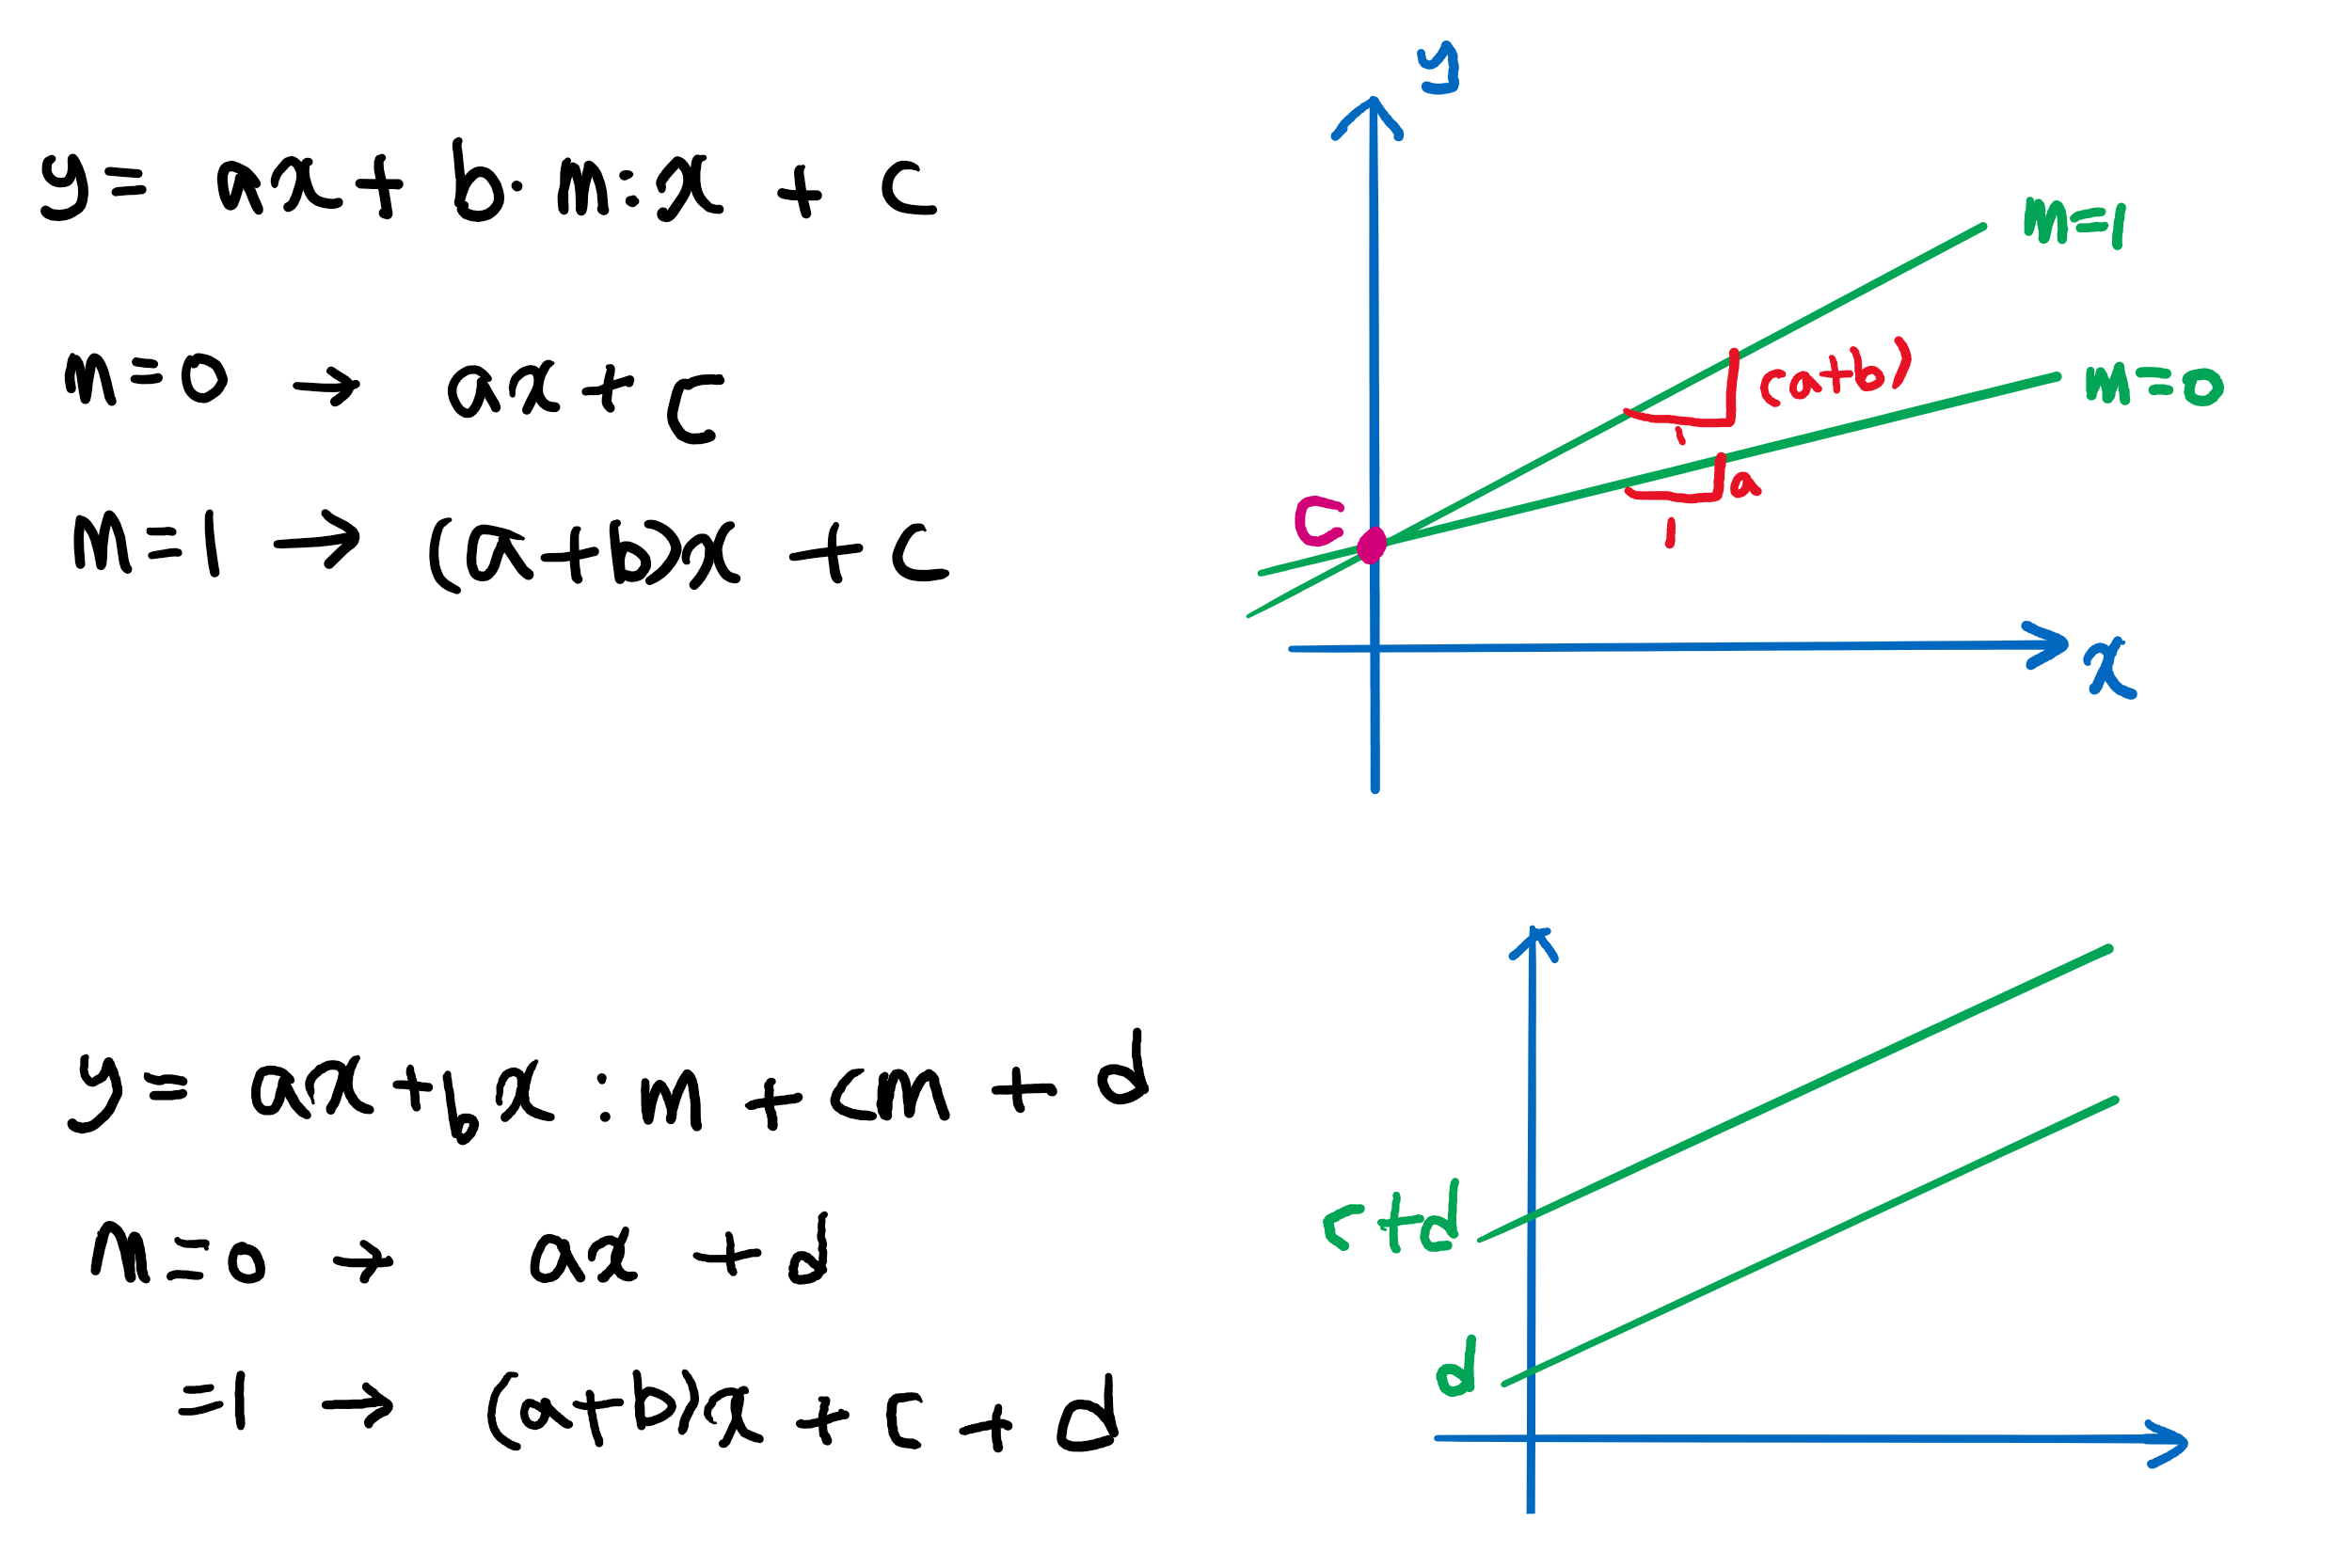 y = ax + b·m:x + c
m=0 → ax + c
m=1 → (a+b)x + c
y
m=1
m=0
(a+b)
1
a
1
c
x
y = ax+bx:m + cm + d
m=0 → ax + d
=1 → (a+b)x + c + d
c+d
d